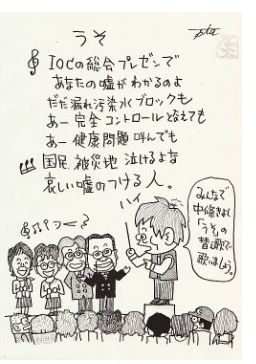 うそ
IOCの総会プレゼンで
あなたの嘘がわかるのよ
だだ漏れ汚染水ブロックも
あー完全コントロールとなえても
あー健康問題叫んでも
国民、被災地泣けるよな
哀しい嘘のつける人。
ハイ
みんなで
中條きよし
「うそ」の
替え歌で
歌いましょう。